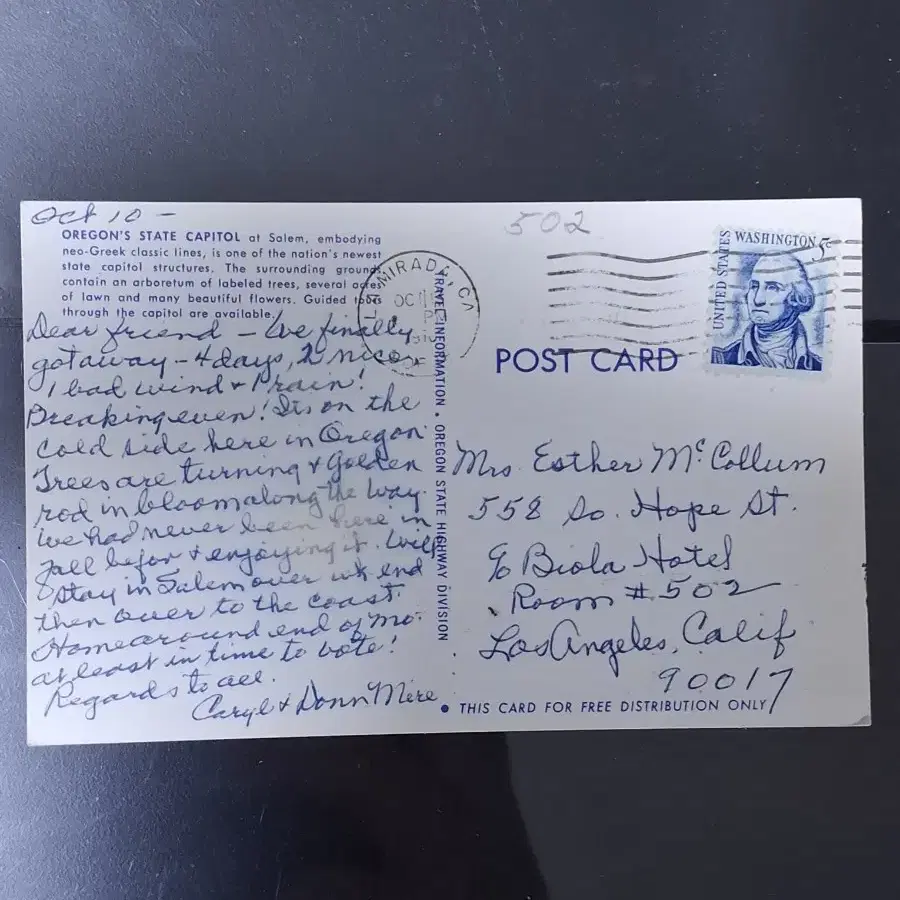 Oct 10 -
OREGON'S STATE CAPITOL at Salem, embodying
neo-Greek classic lines, is one of the nation's newest
state capitol structures. The surrounding grounds
contain an arboretum of labeled trees, several acres
of lawn and many beautiful flowers. Guided tours
through the capitol are available.
Dear friend - We finally
got away - 4 days, 2 nice,
1 bad wind & 1 rain!
Breaking even! Its on the
cold side here in Oregon.
Trees are turning & Golden
rod in bloom along the way.
We had never been here in
fall befor & enjoying it. Will
stay in Salem over wk end
then over to the coast.
Home around end of mo.
at least in time to vote!
Regards to all.
Caryl & Donn Mere
MIRADA, CA
OCT
TRAVEL INFORMATION • OREGON STATE HIGHWAY DIVISION
502
UNITED STATES
WASHINGTON 5c
POST CARD
Mrs. Esther McCollum
558 So. Hope St.
c/o Biola Hotel
Room #502
Los Angeles, Calif
90017
• THIS CARD FOR FREE DISTRIBUTION ONLY